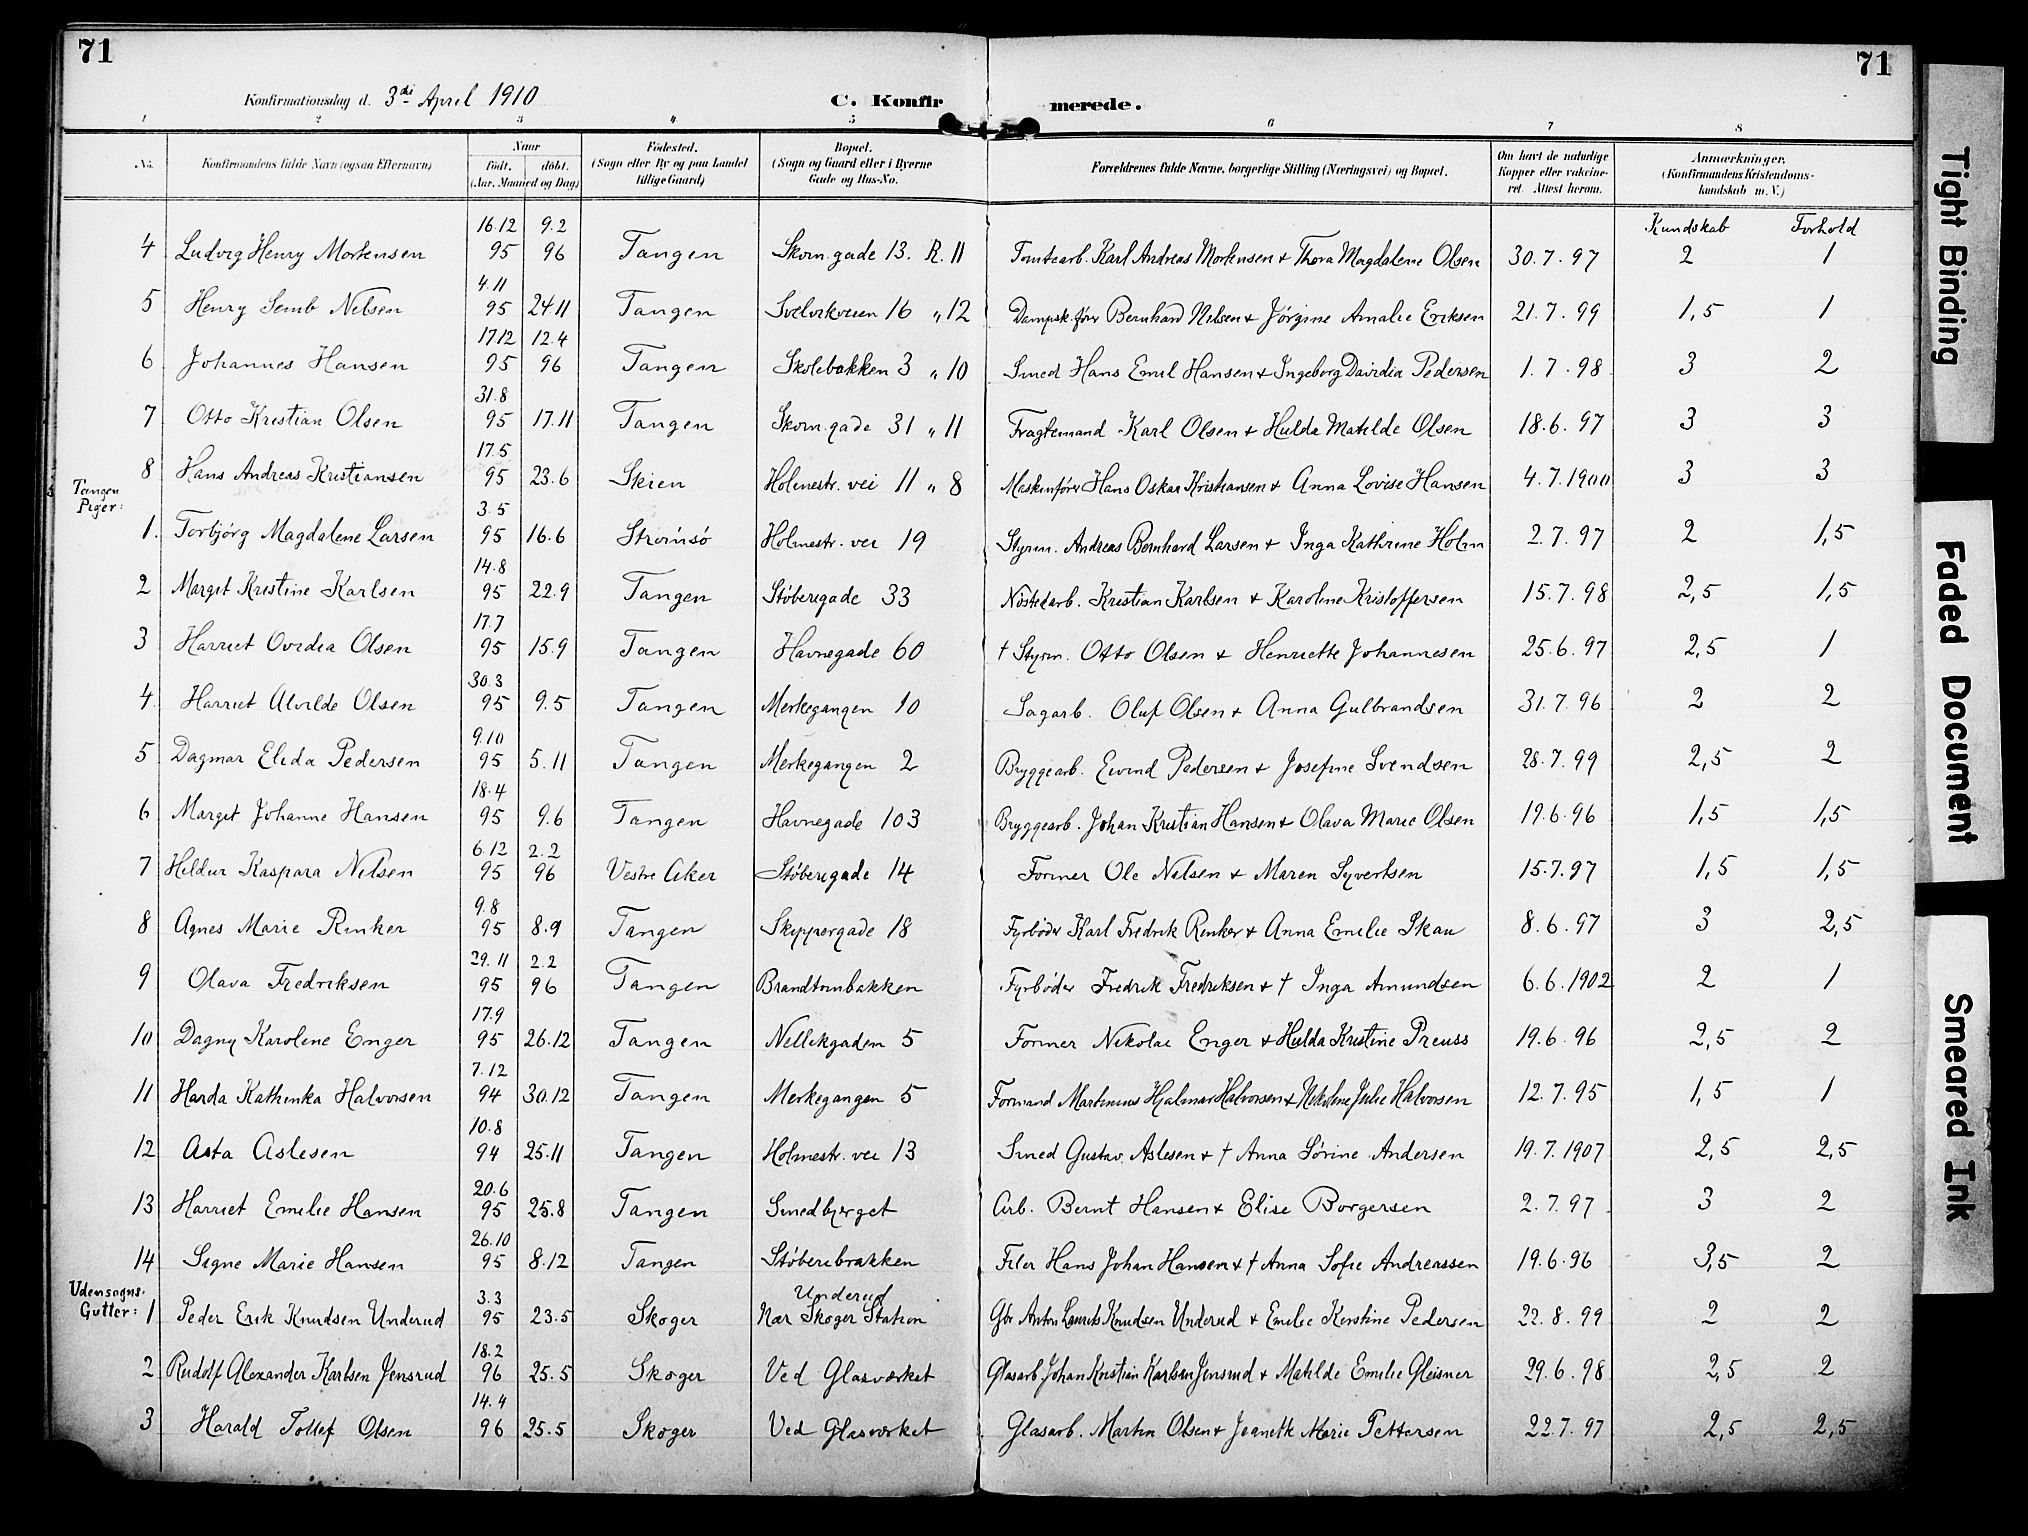 71
71
Konfirmationsdag d. 3die April 1910
C. Konfirmerede.
1 2 3 4 5 6 7 8
No. Konfirmandens fulde Navn (ogsaa Efternavn) Naar født. døbt. (Aar, Maaned og Dag) Fødested. (Sogn eller By og paa Landet tillige Gaard) Bopæl. (Sogn og Gaard eller i Byerne Gade og Hus-No. Forældrenes fulde Navne, borgerlige Stilling (Næringsvei) og Bopæl. Om havt de naturlige Kopper eller vakcineret. Attest herom. Anmærkninger. (Konfirmandens Kristendomskundskab m. V.)
Kundskab Forhold
4 Ludvig Henry Mortensen 16.12 95 9.2 96 Tangen Skom.gade 13. R. 11 Tomtearb. Karl Andreas Mortensen + Thora Magdalene Olsen 30.7.97 2 1
5 Henry Semb Nilsen 4.11 95 24.11 Tangen Svelvikveien 16 " 12 Dampsk.fører Bernhard Nilsen + Jørgine Amalie Eriksen 21.7.99 1,5 1
6 Johannes Hansen 17.12 95 12.4 96 Tangen Skolebakken 3 " 10 Smed Hans Emil Hansen + Ingeborg Davidia Pedersen 1.7.98 3 2
7 Otto Kristian Olsen 31.8 95 17.11 Tangen Skom.gade 31 " 11 Fragtemand Karl Olsen + Hulda Matilde Olsen 18.6.97 3 3
8 Hans Andreas Kristiansen 17.5 95 23.6 Skien Holmestr. vei 11 " 8 Maskinfører Hans Oskar Kristiansen + Anna Lovise Hansen 4.7.1900 3 3
Tangen Piger:
1. Torbjørg Magdalene Larsen 3.5 95 16.6 Strømsø Holmestr. vei 19 Styrm. Andreas Bernhard Larsen + Inga Kathrine Holm 2.7.97 2 1,5
2 Margit Kristine Karlsen 14.8 95 22.9 Tangen Støberigade 33 Nøstedarb. Kristian Karlsen + Karoline Kristoffersen 15.7.98 2,5 1,5
3 Harriet Ovidia Olsen 17.7 95 15.9 Tangen Havnegade 60 † Styrm. Otto Olsen + Henriette Johannesen 25.6.97 2,5 1
4 Harriet Alvilde Olsen 30.3 95 9.5 Tangen Merkegangen 10 Sagarb. Oluf Olsen + Anna Gulbrandsen 31.7.96 2 2
5 Dagmar Elida Pedersen 9.10 95 5.11 Tangen Merkegangen 2 Bryggearb. Eivind Pedersen + Josefine Svendsen 28.7.99 2,5 2
6 Margit Johanne Hansen 18.4 95 9.6 Tangen Havnegade 103 Bryggearb. Johan Kristian Hansen + Olava Marie Olsen 19.6.96 1,5 1,5
7 Hildur Kaspara Nilsen 6.12 95 2.2 96 Vestre Aker Støberigade 14 Former Ole Nilsen + Maren Syvertsen 15.7.97 1,5 1,5
8 Agnes Marie Rinker 9.8 95 8.9 Tangen Skippergade 18 Fyrbøder Karl Fredrik Rinker + Anna Emilie Skau 8.6.97 3 2,5
9 Olava Fredriksen 29.11 95 2.2 96 Tangen Brandtombakken Fyrbøder Fredrik Fredriksen + † Inga Amundsen 6.6.1902 2 1
10 Dagny Karoline Enger 17.9 95 26.12 Tangen Nellikgaden 5 Former Nikolai Enger + Hulda Kristine Preuss 19.6.96 2,5 2
11 Harda Kathinka Halvorsen 7.12 94 30.12 Tangen Merkegangen 5 Formand Martinius Hjalmar Halvorsen + Nikoline Julie Halvorsen 12.7.95 1,5 1
12 Asta Aslesen 10.8 94 25.11 Tangen Holmestr. vei 13 Smed Gustav Aslesen + † Anna Sørine Andersen 19.7.1907 2,5 2,5
13 Harriet Emilie Hansen 20.6 95 25.8 Tangen Smedbjerget Arb. Bernt Hansen + Elise Borgersen 2.7.97 3 2
14 Signe Marie Hansen 26.10 95 8.12 Tangen Støberibrakken Filer Hans Johan Hansen + † Anna Sofie Andreassen 19.6.96 3,5 2
Udensogns. Gutter:
1 Peder Erik Knudsen Underud 3.3 95 23.5 Skoger Underud Nær Skoger Station Gbr Anton Laurits Knudsen Underud + Emilie Kirstine Pedersen 22.8.99 2 2
2 Rudolf Alexander Karlsen Jensrud 18.2 96 25.5 Skoger Ved Glasværket Glasarb. Johan Kristian Karlsen Jensrud + Matilde Emilie Gleisner 29.6.98 2,5 2
3 Harald Tollef Olsen 14.4 96 25.5 Skoger Ved Glasværket Glasarb. Martin Olsen + Jeanette Marie Pettersen 22.7.97 2,5 2,5
Tight Binding
Faded Document
Smeared Ink